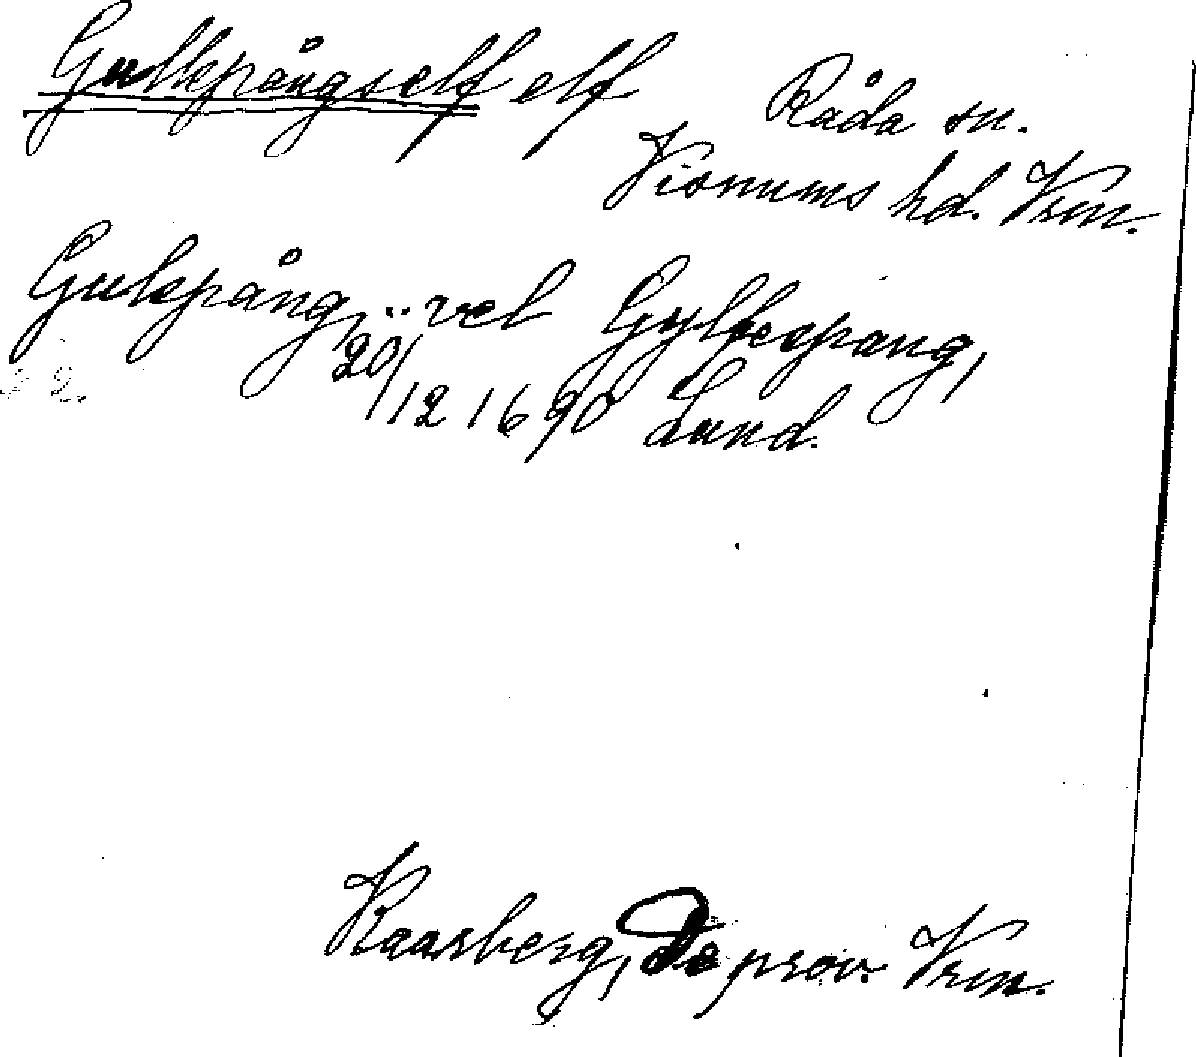 Gullspångself elf Råda sn.
Visnums hd. Vrm.
Gulspång, vel Gyllespang,
20/12 1690 Lund.
Kaarsberg, De prov. Vrm.